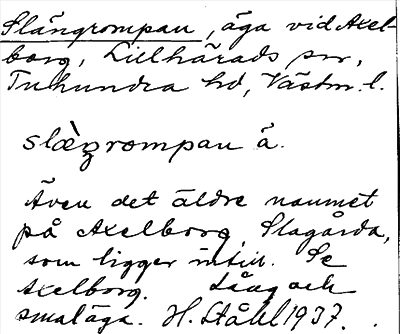 Slängrompan, äga vid Axel-
borg, Lillhärads sn,
Tuhundra hd, Västm. l.
slæ̀ŋrompan å.
Även det äldre namnet
på Axelborg, Slagårda,
som ligger intill. Se
Axelborg. Lång och
smal äga. H. Ståhl 1937.